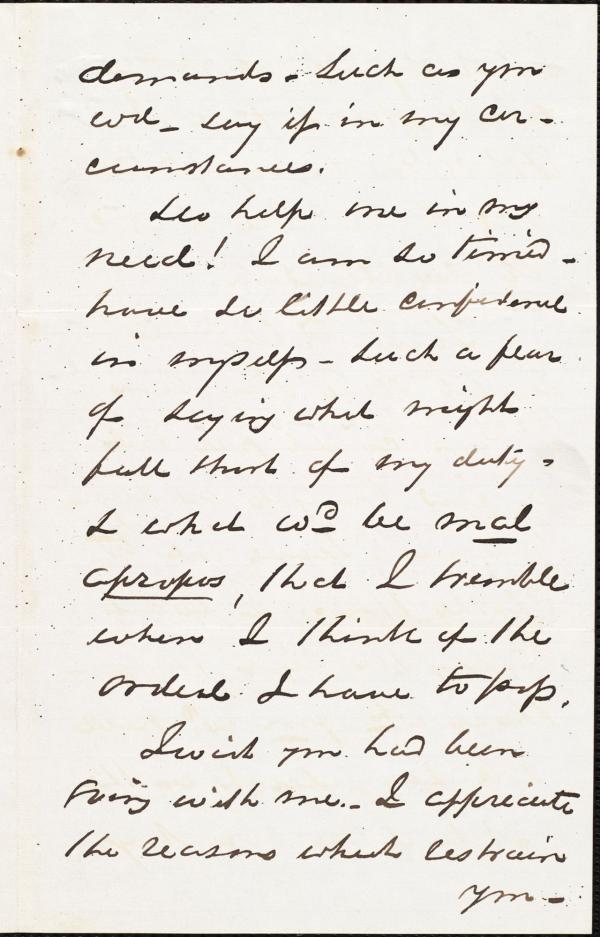 demands - Such as you
wod - say if in my cir -
cumstances.
Do help me in my
need! I am so timid -
have so little confidence
in myself - Such a fear
of saying what might
fall short of my duty -
& what wod be mal
apropos, that I tremble
when I think of the
ordeal I have to pass.
I wish you had been
going with me. - I appreciate
the reasons which restrain
you -